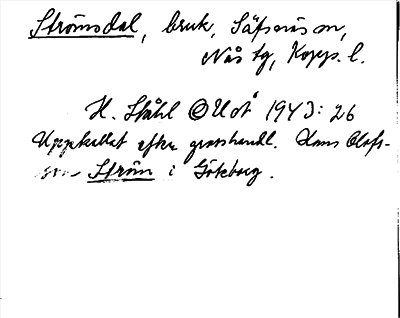 Strömsdal, bruk, Säfsnäs sn,
Nås tg, Kopp. l.
H. Ståhl @ Uot 1943: 26
Uppkallat efter grosshandl. Hans Olofs-
son Ström i Göteborg.